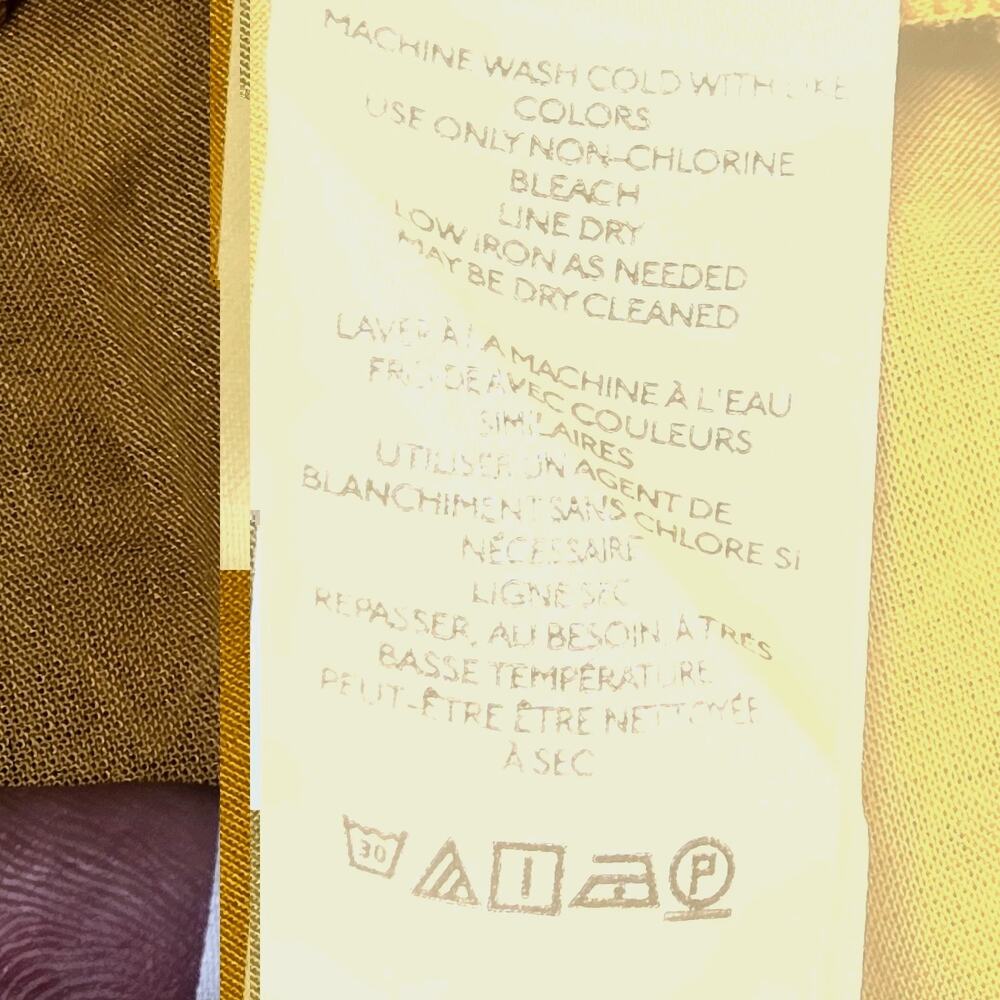 MACHINE WASH COLD WITH LIKE
COLORS
USE ONLY NON-CHLORINE
BLEACH
LINE DRY
LOW IRON AS NEEDED
MAY BE DRY CLEANED
LAVER À LA MACHINE À L'EAU
FROIDE AVEC COULEURS
SIMILAIRES
UTILISER UN AGENT DE
BLANCHIMENT SANS CHLORE SI
NÉCESSAIRE
LIGNE SEC
REPASSER, AU BESOIN À TRÈS
BASSE TEMPÉRATURE
PEUT-ÊTRE ÊTRE NETTOYÉE
À SEC
30 P